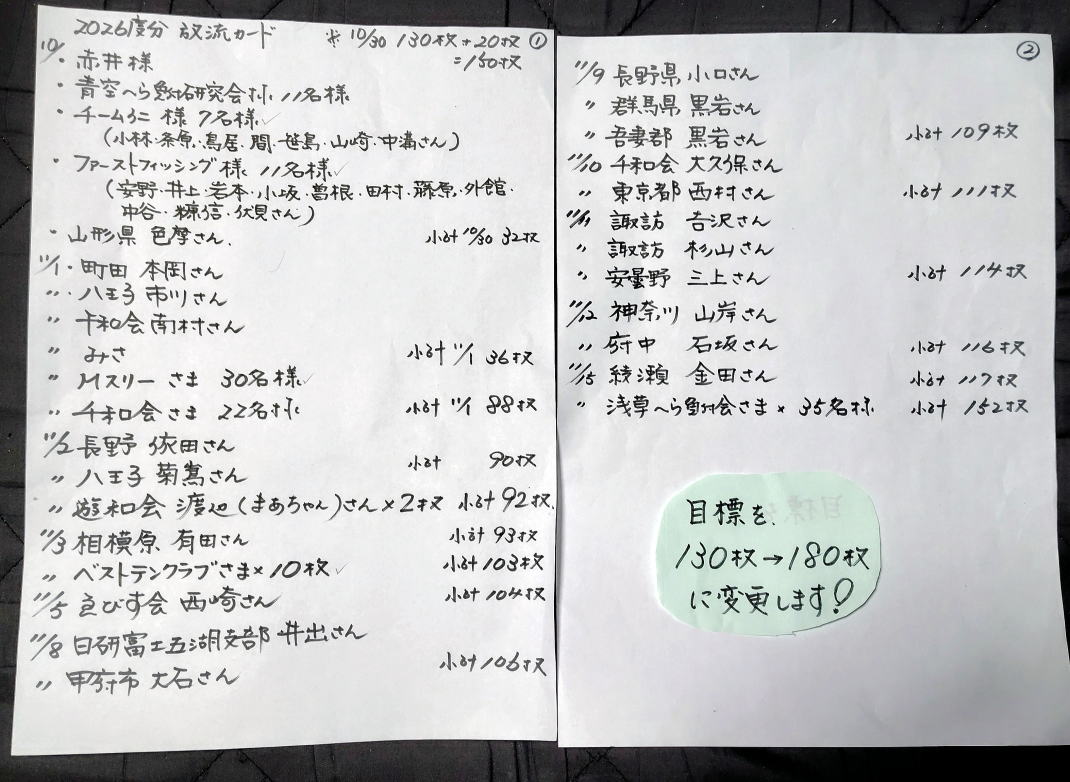 2026度分 放流カード ※ 10/30 130枚+20枚 ①
=150枚
10/・赤井様
・青空へら鮒研究会様 11名様
・チームタニ 様 7名様✓
(小林・条原・鳥居・間・笹島・山崎・中溝さん)
・ファーストフィッシング様 11名様✓
(安野・井上・岩本・小坂・曽根・田村・藤原・外館・
中谷・糠信・伏見さん)
・山形県 色摩さん. 小計 10/30 32枚
11/1・町田 本岡さん
〃・八王子 市川さん
〃 千和会 南村さん
〃 みさ 小計 11/1 36枚
〃 Mスリー さま 30名様✓
〃 千和会さま 22名様 小計 11/1 88枚
11/2 長野 依田さん
〃 八王子 菊嶌さん 小計 90枚
〃 遊和会 渡辺(まあちゃん)さん×2枚 小計92枚.
11/3 相模原 有田さん 小計 93枚
〃 ベストテンクラブさま×10枚✓ 小計103枚
11/5 ゑびす会 西崎さん 小計104枚
11/8 日研富士五湖支部 井出さん
〃 甲府市 大石さん 小計106枚
②
11/9 長野県 小口さん
〃 群馬県 黒岩さん
〃 吾妻郡 黒岩さん 小計 109枚
11/10 千和会 大久保さん
〃 東京都 西村さん 小計 111枚
11/11 諏訪 吉沢さん
〃 諏訪 杉山さん
〃 安曇野 三上さん 小計 114枚
11/12 神奈川 山岸さん
〃 府中 石坂さん 小計 116枚
11/15 綾瀬 金田さん 小計 117枚
〃 浅草へら鮒会さま×35名様 小計 152枚
目標を
130枚→180枚
に変更します!